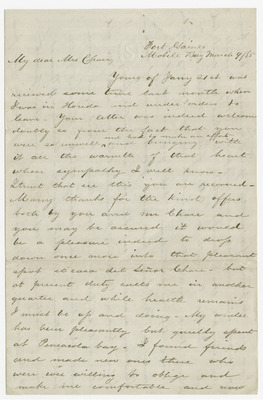 Fort Gaines
Mobile Bay March 9/65
My dear Mrs Chase,
Yours of Jany 21st was
received some time last month when
I was in Florida and under orders to
leave. Your letter was indeed welcome
from the fact that you
were so unwell
it all the warmth of that heart
whose sympathy I well know.
I trust ere this you are recovered.
Many thanks for the kind offer
both by you and Mr Chase and
you may be assured it would
be a pleasure indeed to drop
down once more into that pleasant
spot casa del Señor Chase. but
at present duty calls me in another
quarter and while health remains
I must be up and doing. My winter
has been pleasantly but quietly spent
at Pensacola bay. I found friends
and made new ones there who
were willing to oblige and
make me comfortable and now